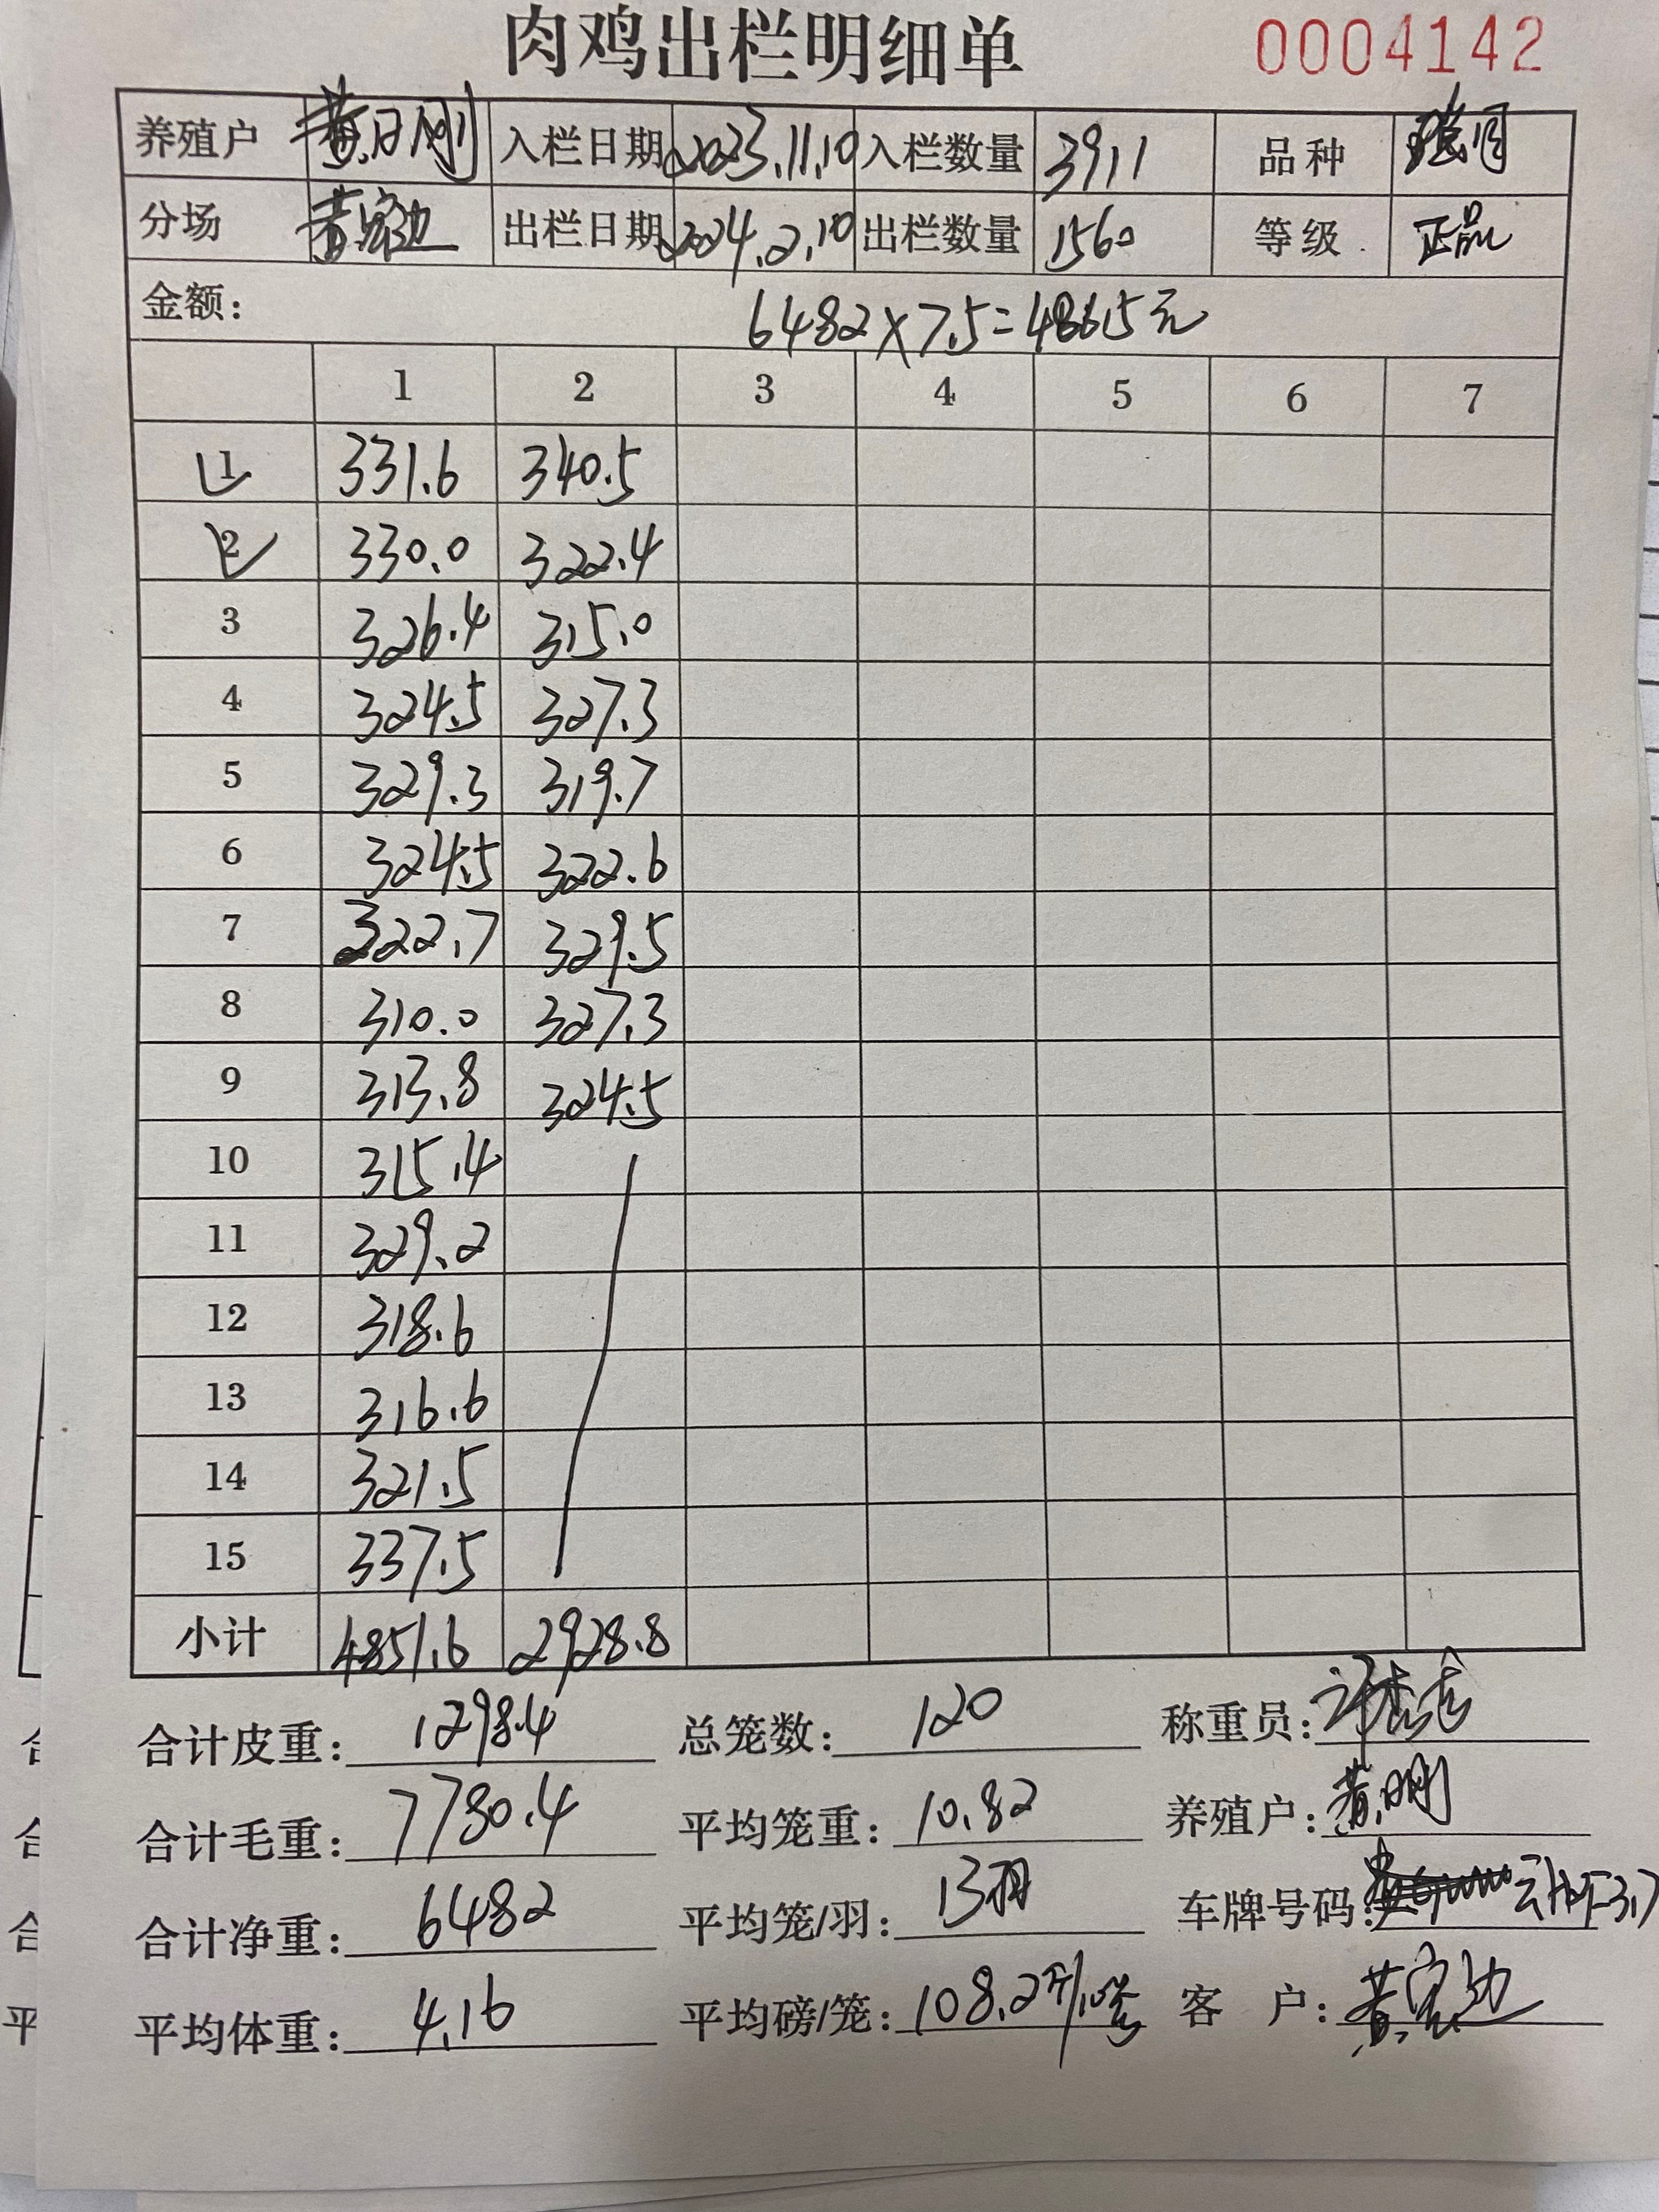 肉鸡出栏明细单 0004142
养殖户 黄日刚 入栏日期 2023.11.10 入栏数量 3911 品种
分场 黄宗边 出栏日期 2024.2.10 出栏数量 1560 等级 正品
金额: 6482×7.5=48615元
1 2 3 4 5 6 7
1 331.6 340.5
2 330.0 322.4
3 326.4 315.0
4 324.5 327.3
5 329.3 319.7
6 324.5 322.6
7 322.7 329.5
8 310.0 327.3
9 313.8 324.5
10 315.4
11 329.2
12 318.6
13 316.6
14 321.5
15 337.5
小计 4851.6 2928.8
合计皮重: 1298.4 总笼数: 120 称重员:
合计毛重: 7780.4 平均笼重: 10.82 养殖户: 黄日刚
合计净重: 6482 平均笼/羽: 13羽 车牌号码:
平均体重: 4.16 平均磅/笼: 108.2斤/10笼 客 户: 黄宗边
合
合
合
平